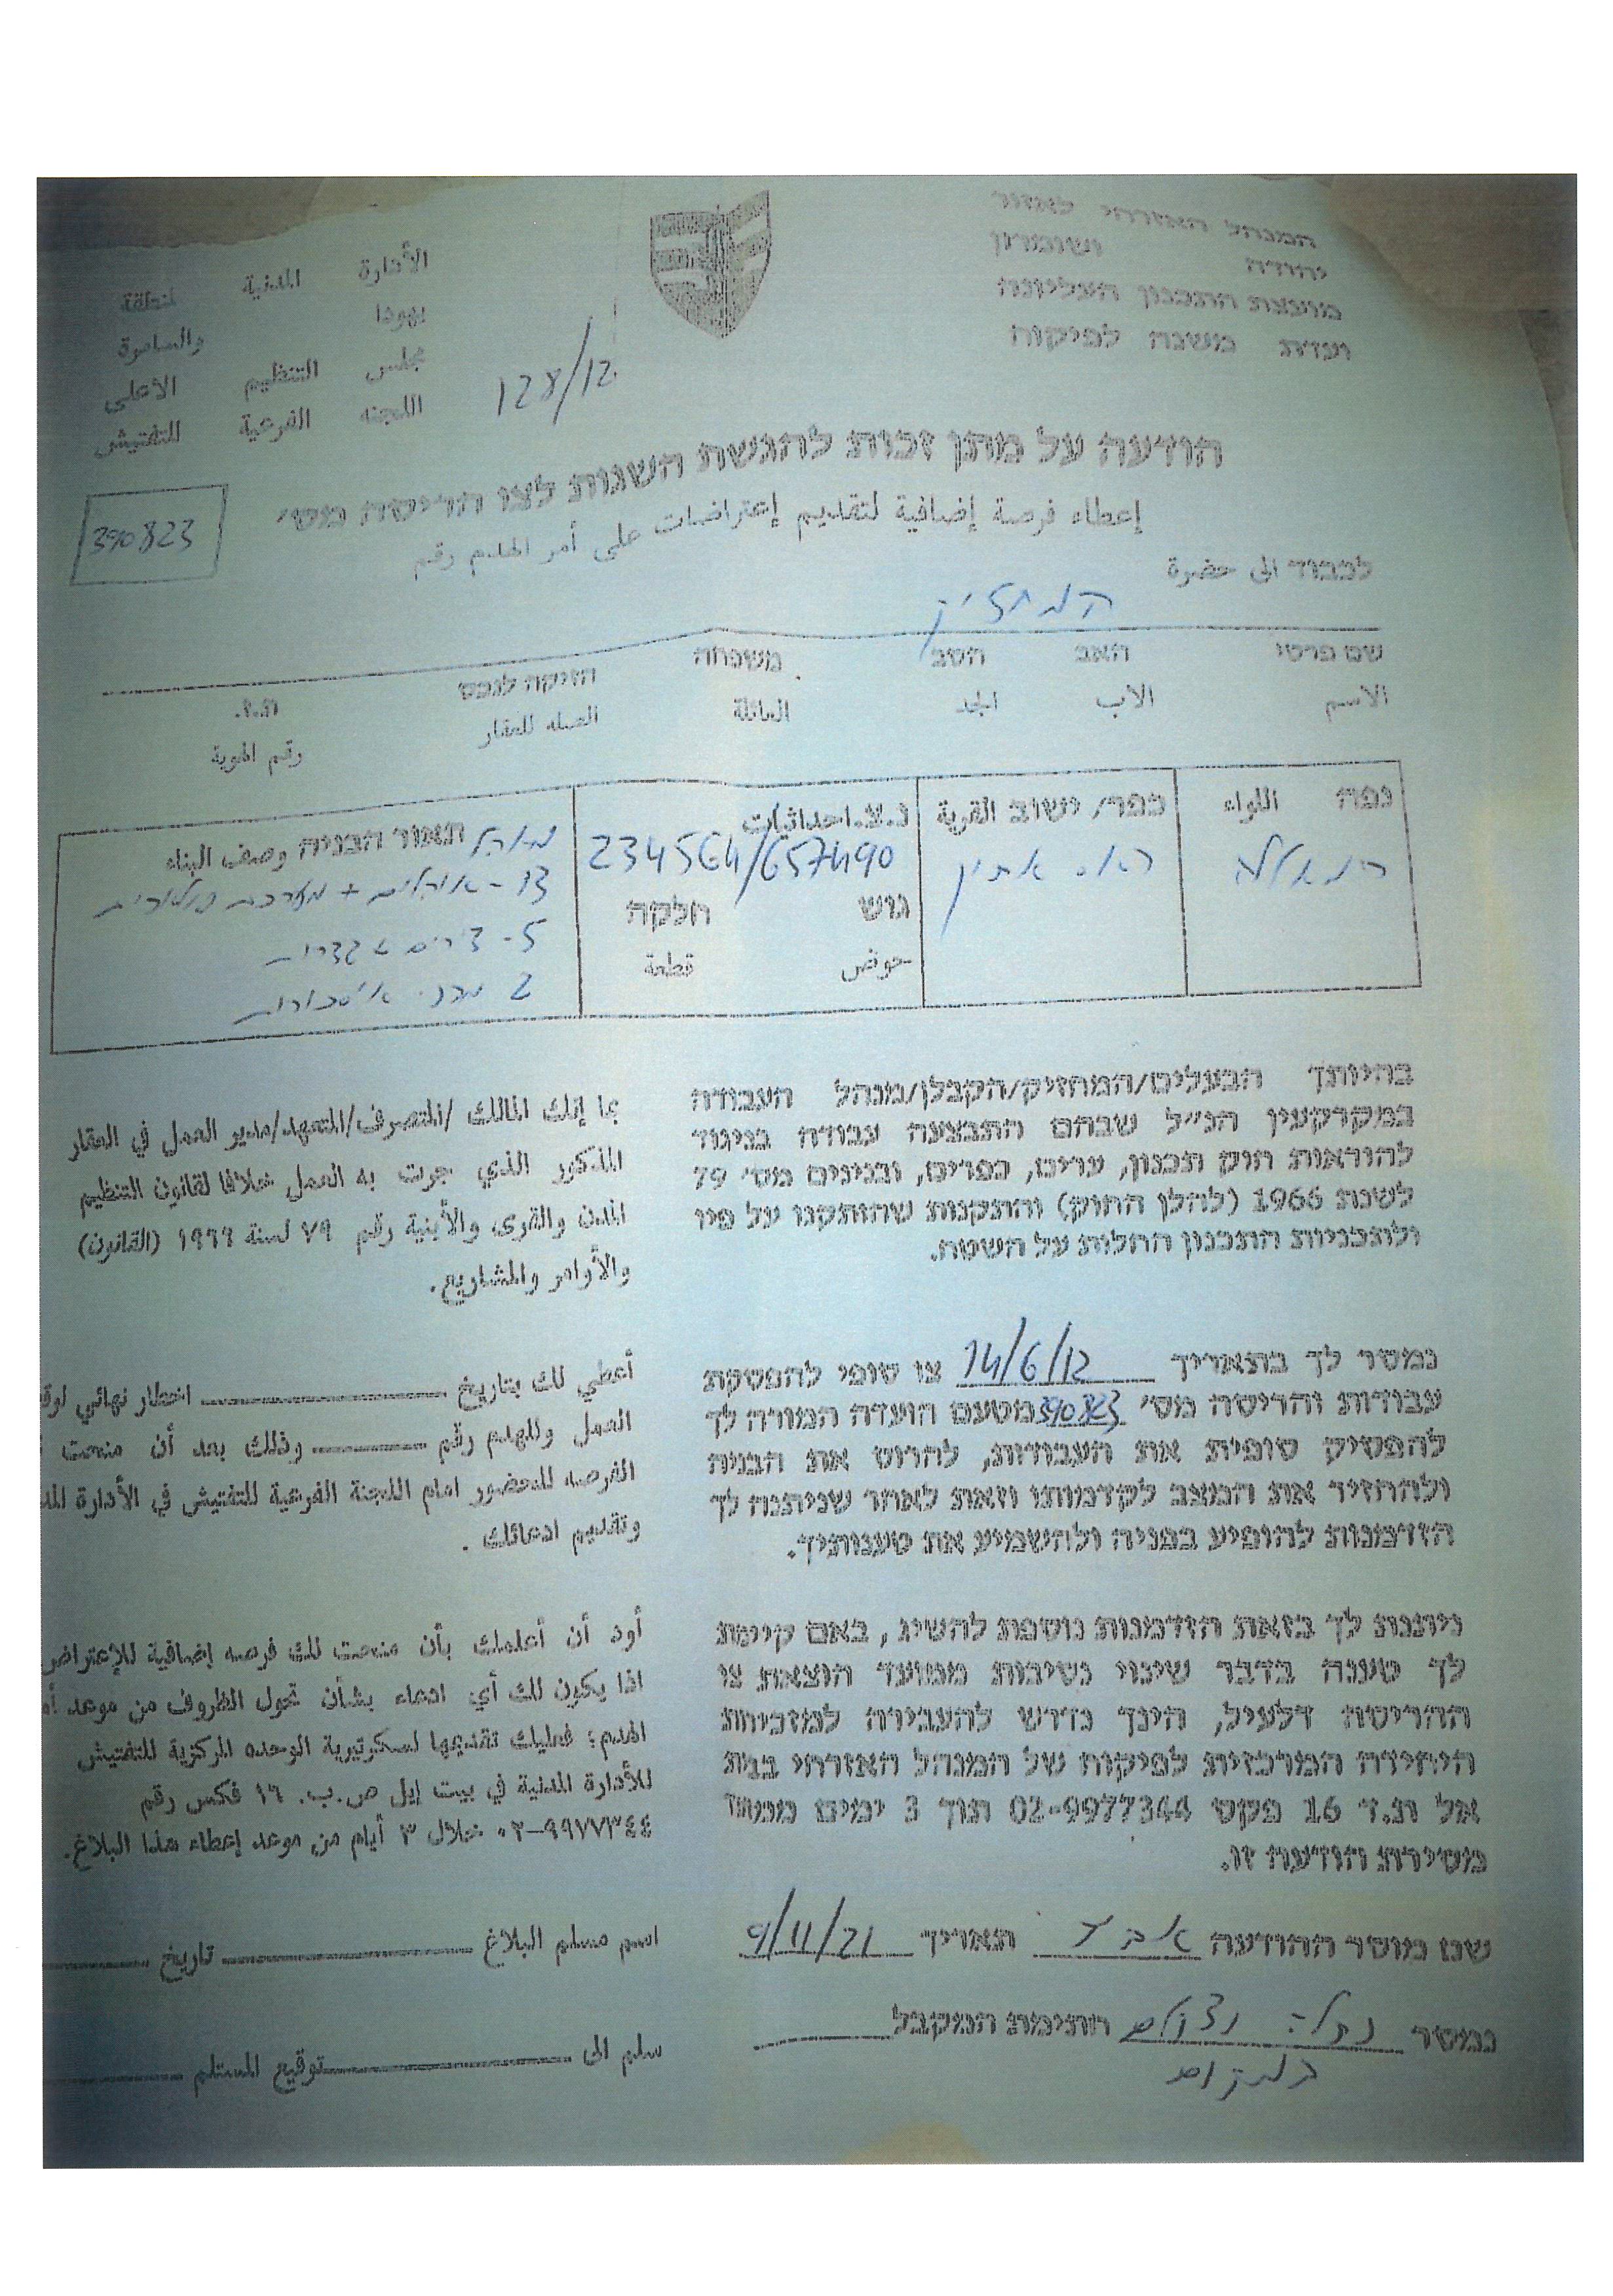 המנהל האזרחי לאזור
יהודה ושומרון
מועצת התכנון העליונה
ועדת משנה לפיקוח
الأدارة المدنية لمنطقة
يهودا والسامرة
مجلس التنظيم الاعلى
اللجنه الفرعية للتفتيش
128/12
הודעה על מתן זכות להגשת השגות לצו הריסה מס'
إعطاء فرصة إضافية لتقديم إعتراضات على أمر الهدم رقم
390823
לכבוד الى حضرة
המחזיק
שם פרטי האב הסב משפחה הזיקה לנכס ת.ז.
الاسم الاب الجد العائلة الصله للعقار رقم الهوية
נפה اللواء
רמאללה
כפר/ ישוב القرية
ראס אתין
נ.צ. احداثيات
234564/657490
גוש חלקה
حوض قطعة
תאור הבניה وصف البناء
מאהל
13 - אוהלים + מערכת סולורית
5 - דירים
2
בהיותך הבעלים/המחזיק/הקבלן/מנהל העבודה
במקרקעין הנ"ל שבהם התבצעה עבודה בניגוד
להוראות חוק תכנון, ערים, כפרים, ובנינים מס' 79
לשנת 1966 (להלן החוק) והתקנות שהותקנו על פיו
ולתכניות התכנון החלות על השטח.
بما إنك المالك /المتصرف/المتعهد/مدير العمل في العقار
المذكور الذي جرت به العمل خلافا لقانون التنظيم
المدن والقرى والأبنية رقم ٧٩ لسنة ١٩٦٦ (القانون)
والأوامر والمشاريع.
נמסר לך בתאריך 14/6/12 צו סופי להפסקת
עבודות והריסה מס' 390823 מטעם הועדה המורה לך
להפסיק סופית את העבודות, להרוס את הבניה
ולהחזיר את המצב לקדמותו וזאת לאחר שניתנה לך
הזדמנות להופיע בפניה ולהשמיע את טענותיך.
أعطي لك بتاريخ ـــــــــ اخطار نهائي لوق
العمل وللهدم رقم ـــــــــ وذلك بعد أن منحت
الفرصه للحضور امام اللجنة الفرعية للتفتيش في الأدارة المد
وتقديم ادعائك .
ניתנת לך בזאת הזדמנות נוספת להשיג, באם קיימת
לך טענה בדבר שינוי נסיבות ממועד הוצאת צו
ההריסה דלעיל, הינך נדרש להעבירה למזכירות
היחידה המרכזית לפיקוח של המנהל האזרחי בבית
אל ת.ד 16 פקס 02-9977344 תוך 3 ימים ממועד
מסירת הודעה זו.
أود أن أعلمك بأن منحت لك فرصه إضافية للإعتراض
اذا يكون لك أي ادعاء بشأن تحول الظروف من موعد أم
الهدم؛ فعليك تقديمها لسكرتيرية الوحده المركزية للتفتيش
للأدارة المدنية في بيت إيل ص.ب. ١٦ فكس رقم
٠٢-٩٩٧٧٣٤٤ خلال ٣ أيام من موعد إعطاء هذا البلاغ.
שם מוסר ההודעה תאריך 9/11/21
اسم مسلم البلاغ ـــــــــ تاريخ ـــــــــ
נמסר נתלה וצולם חתימת המקבל
במקום
سلم الى ـــــــــ توقيع المستلم ـــــــــ